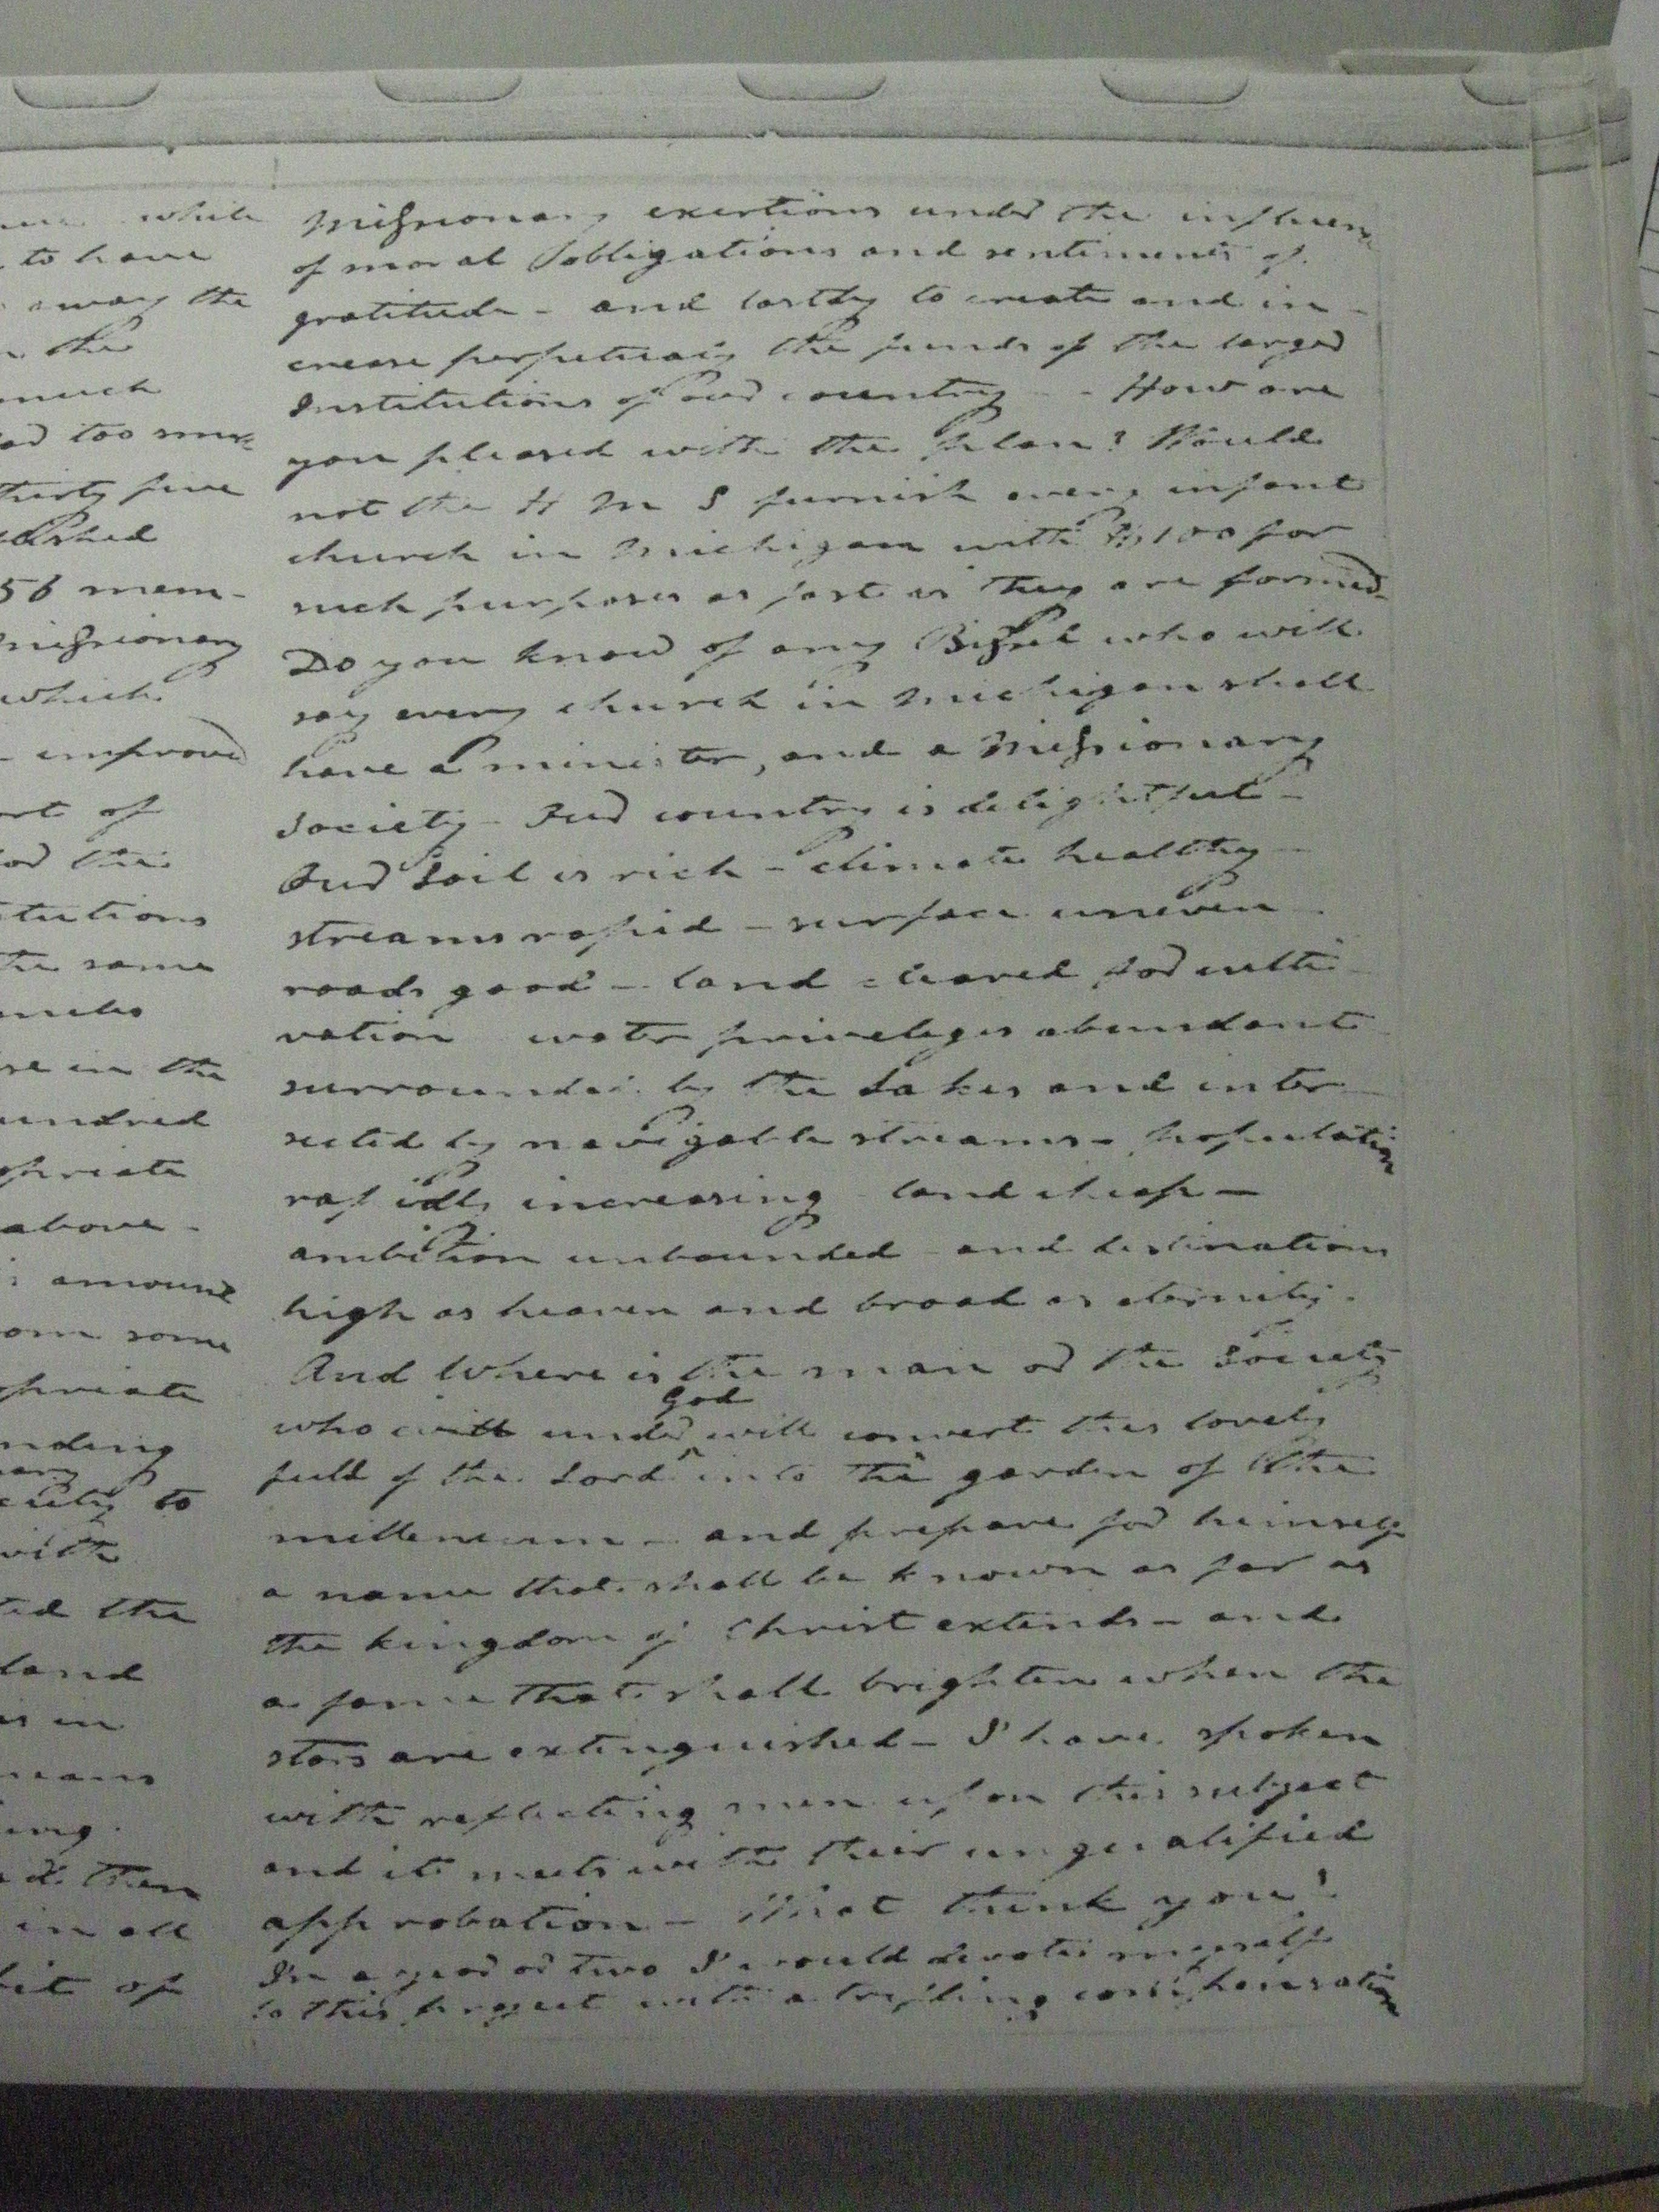 while
to have
away the
the
much
too mu-
thirty five
56 mem-
missionary
which
- improved
of
the
tutions
the same
re in the
undred
priate
above -
amount
some
priate
nding
ciety to
with
ted the
land
is in
means
ing.
then
in all
of
Missionary exertions under the influence
of moral obligations and sentiments of
gratitude - and lastly to create and in-
crease perpetually the funds of the larger
Institutions of our country - - How are
you pleased with the plan? Would
not the H M S furnish every infant
church in Michigan with $100 for
such purposes as fast as they are formed-
Do you know of any Bissel who will
say every church in Michigan shall
have a minister, and a Missionary
Society - Our country is delightful -
Our Soil is rich - climate healthy -
streams rapid - surface uneven -
roads good - land cleared for culti-
vation water priveleges abundant
surrounded by the Lakes and inter-
sected by navigable streams - population
rapidly increasing land cheap -
ambition unbounded - and destination
high as heaven and broad as eternity.
And Where is the man or the Society
who will under God will convert this lovely
field of the Lord into the garden of the
milleneum - and prepare for himself
a name that shall be known as far as
the kingdom of Christ extends - and
a fame that shall brighten when the
stars are extinguished - I have spoken
with reflecting men upon this subject
and it meets with their unqualified
approbation - What think you?
In a year or two I would devote myself
to this project with a trifling compensation